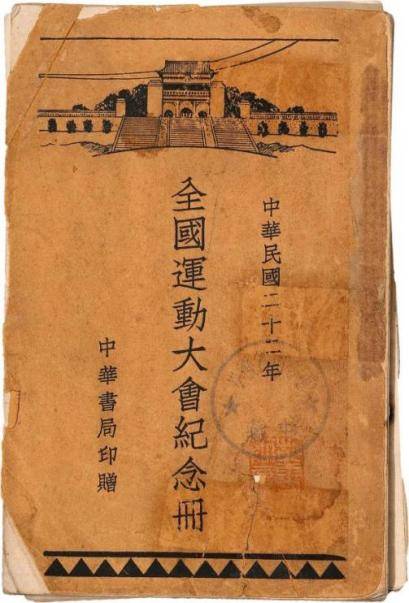 中華民國二十二年
全國運動大會紀念冊
中華書局印贈